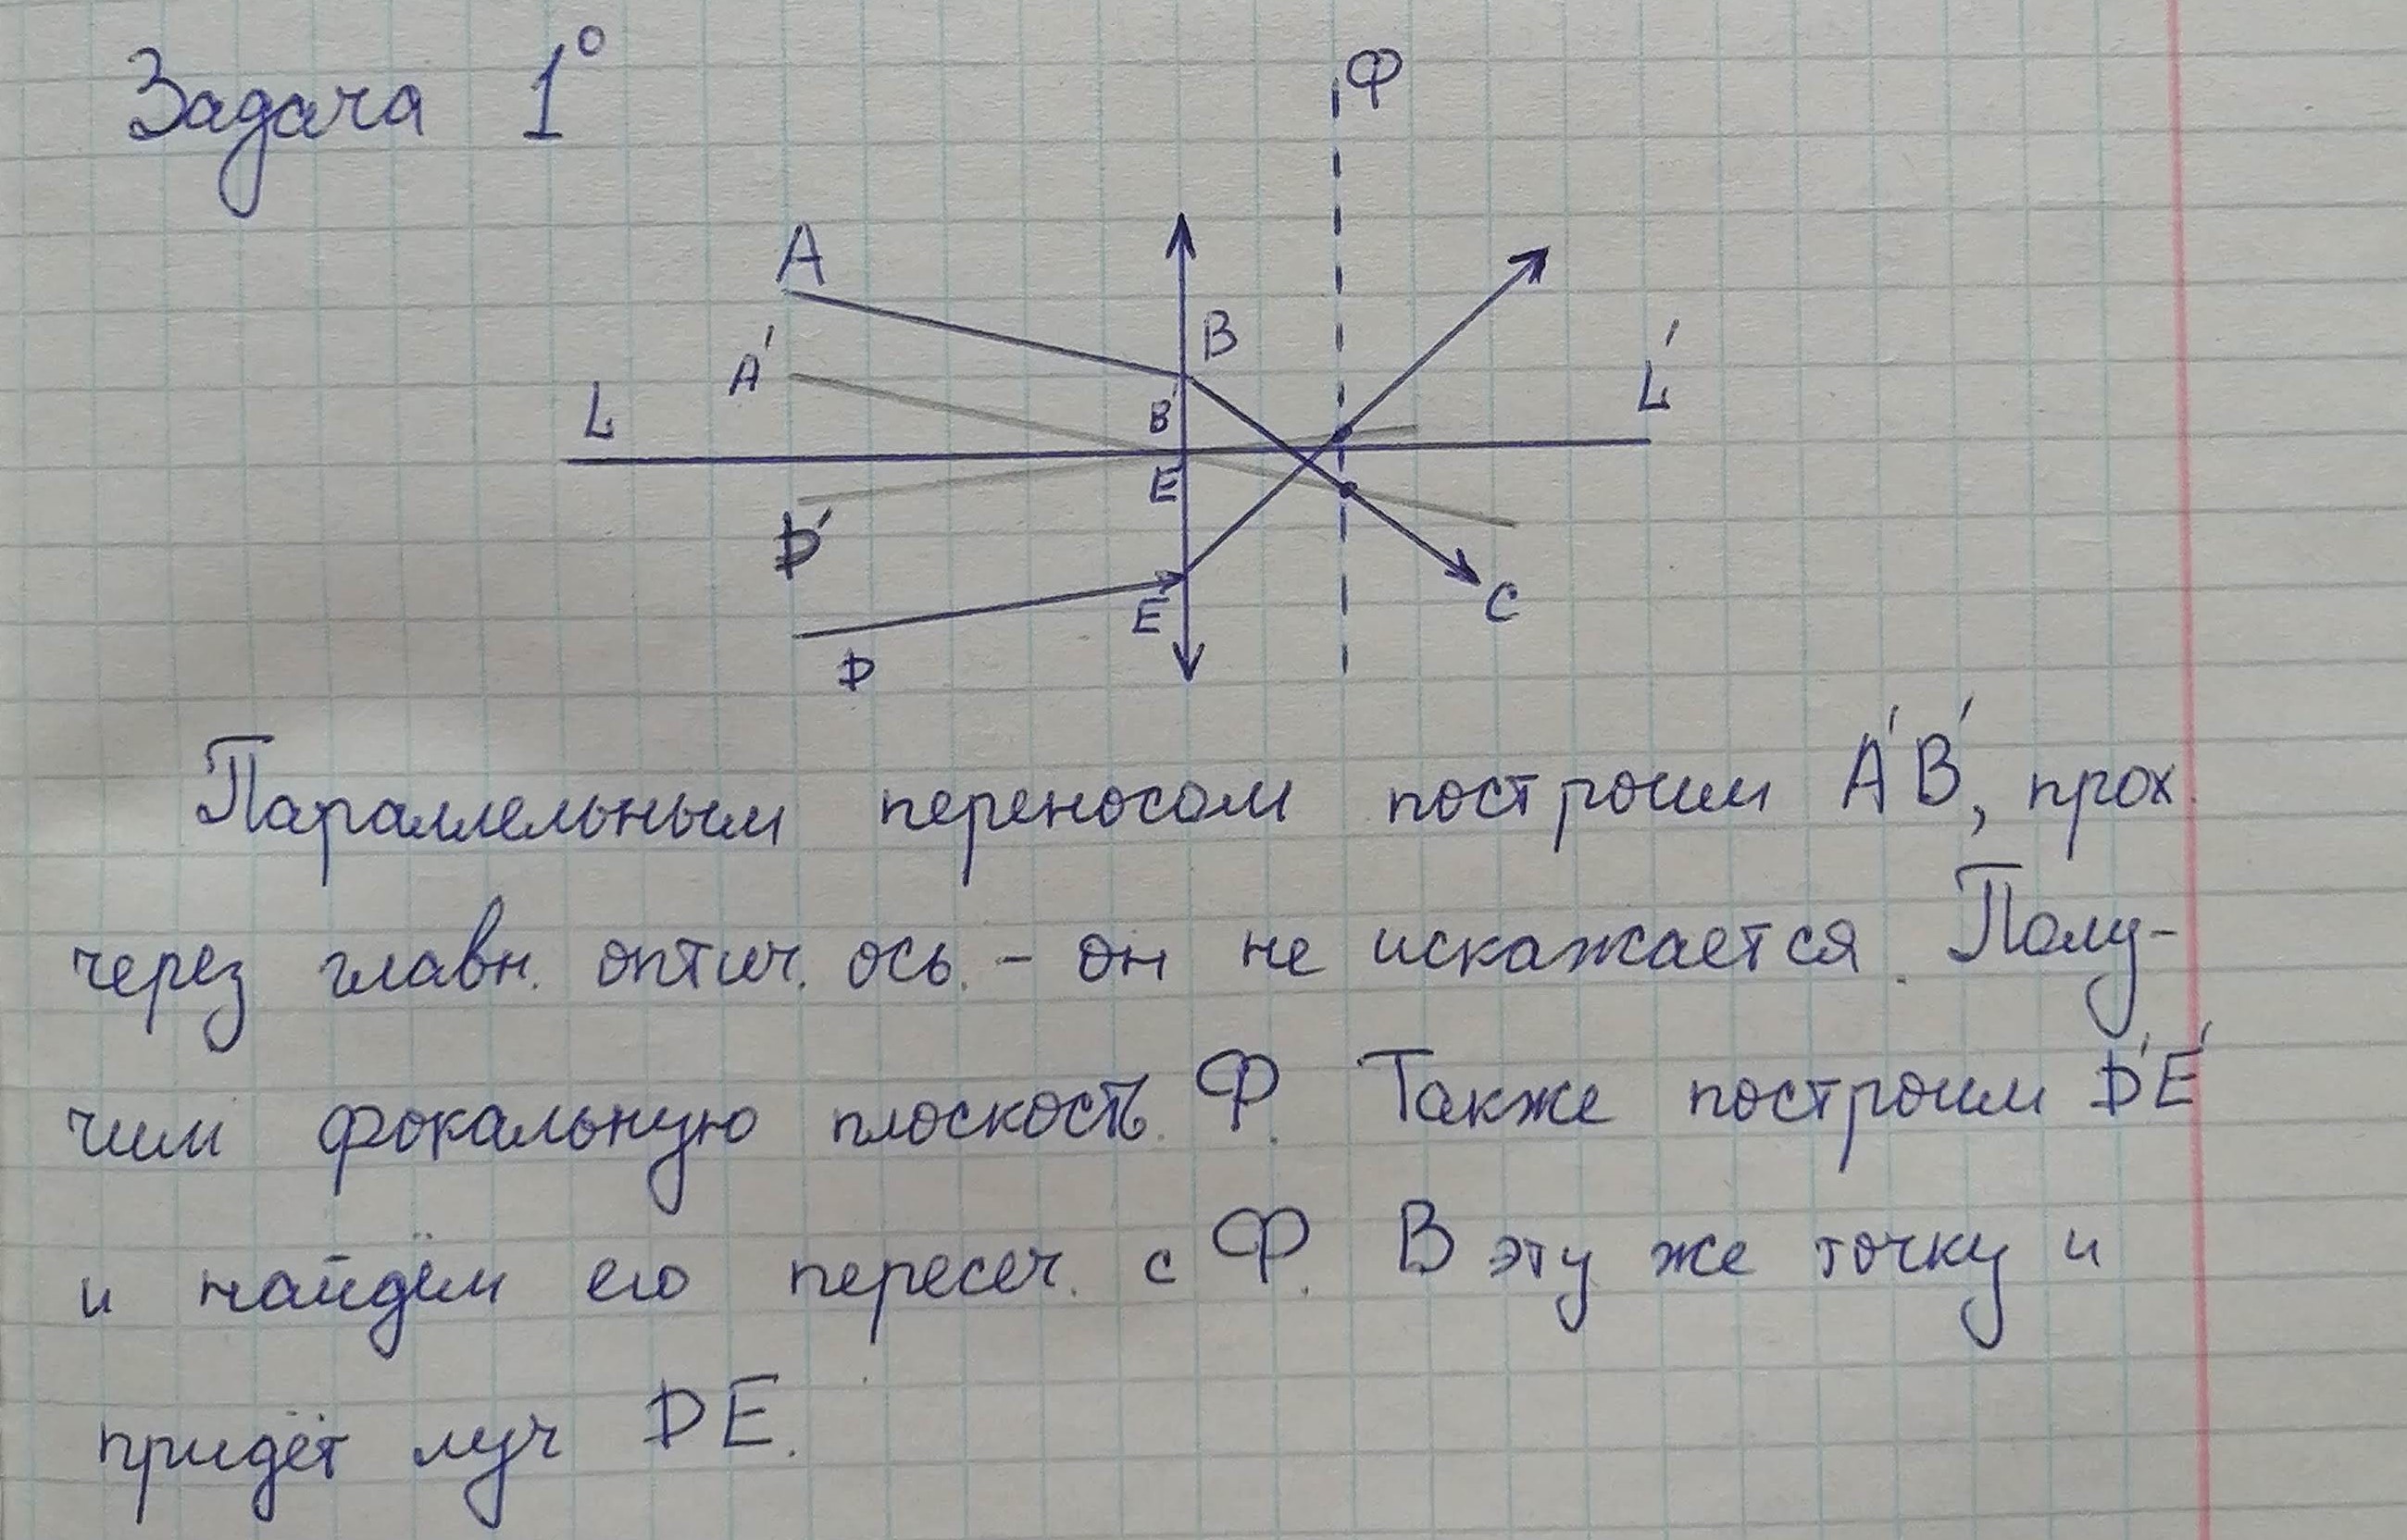 Задача 1°
Ф
A
B
A'
L
L'
B'
E
D'
E
C
D
Параллельным переносом построим A'B', прох.
через главн. оптич. ось. - он не искажается. Полу-
чим фокальную плоскость Ф. Также построим D'E'
и найдём его пересеч. с Ф. В эту же точку и
придёт луч DE.